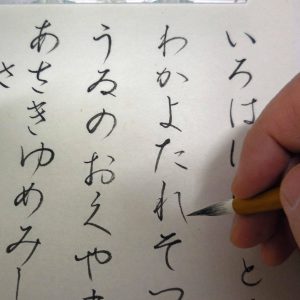 いろは と
わかよたれそつ
うゐのおえや
あさきゆめみし
さ